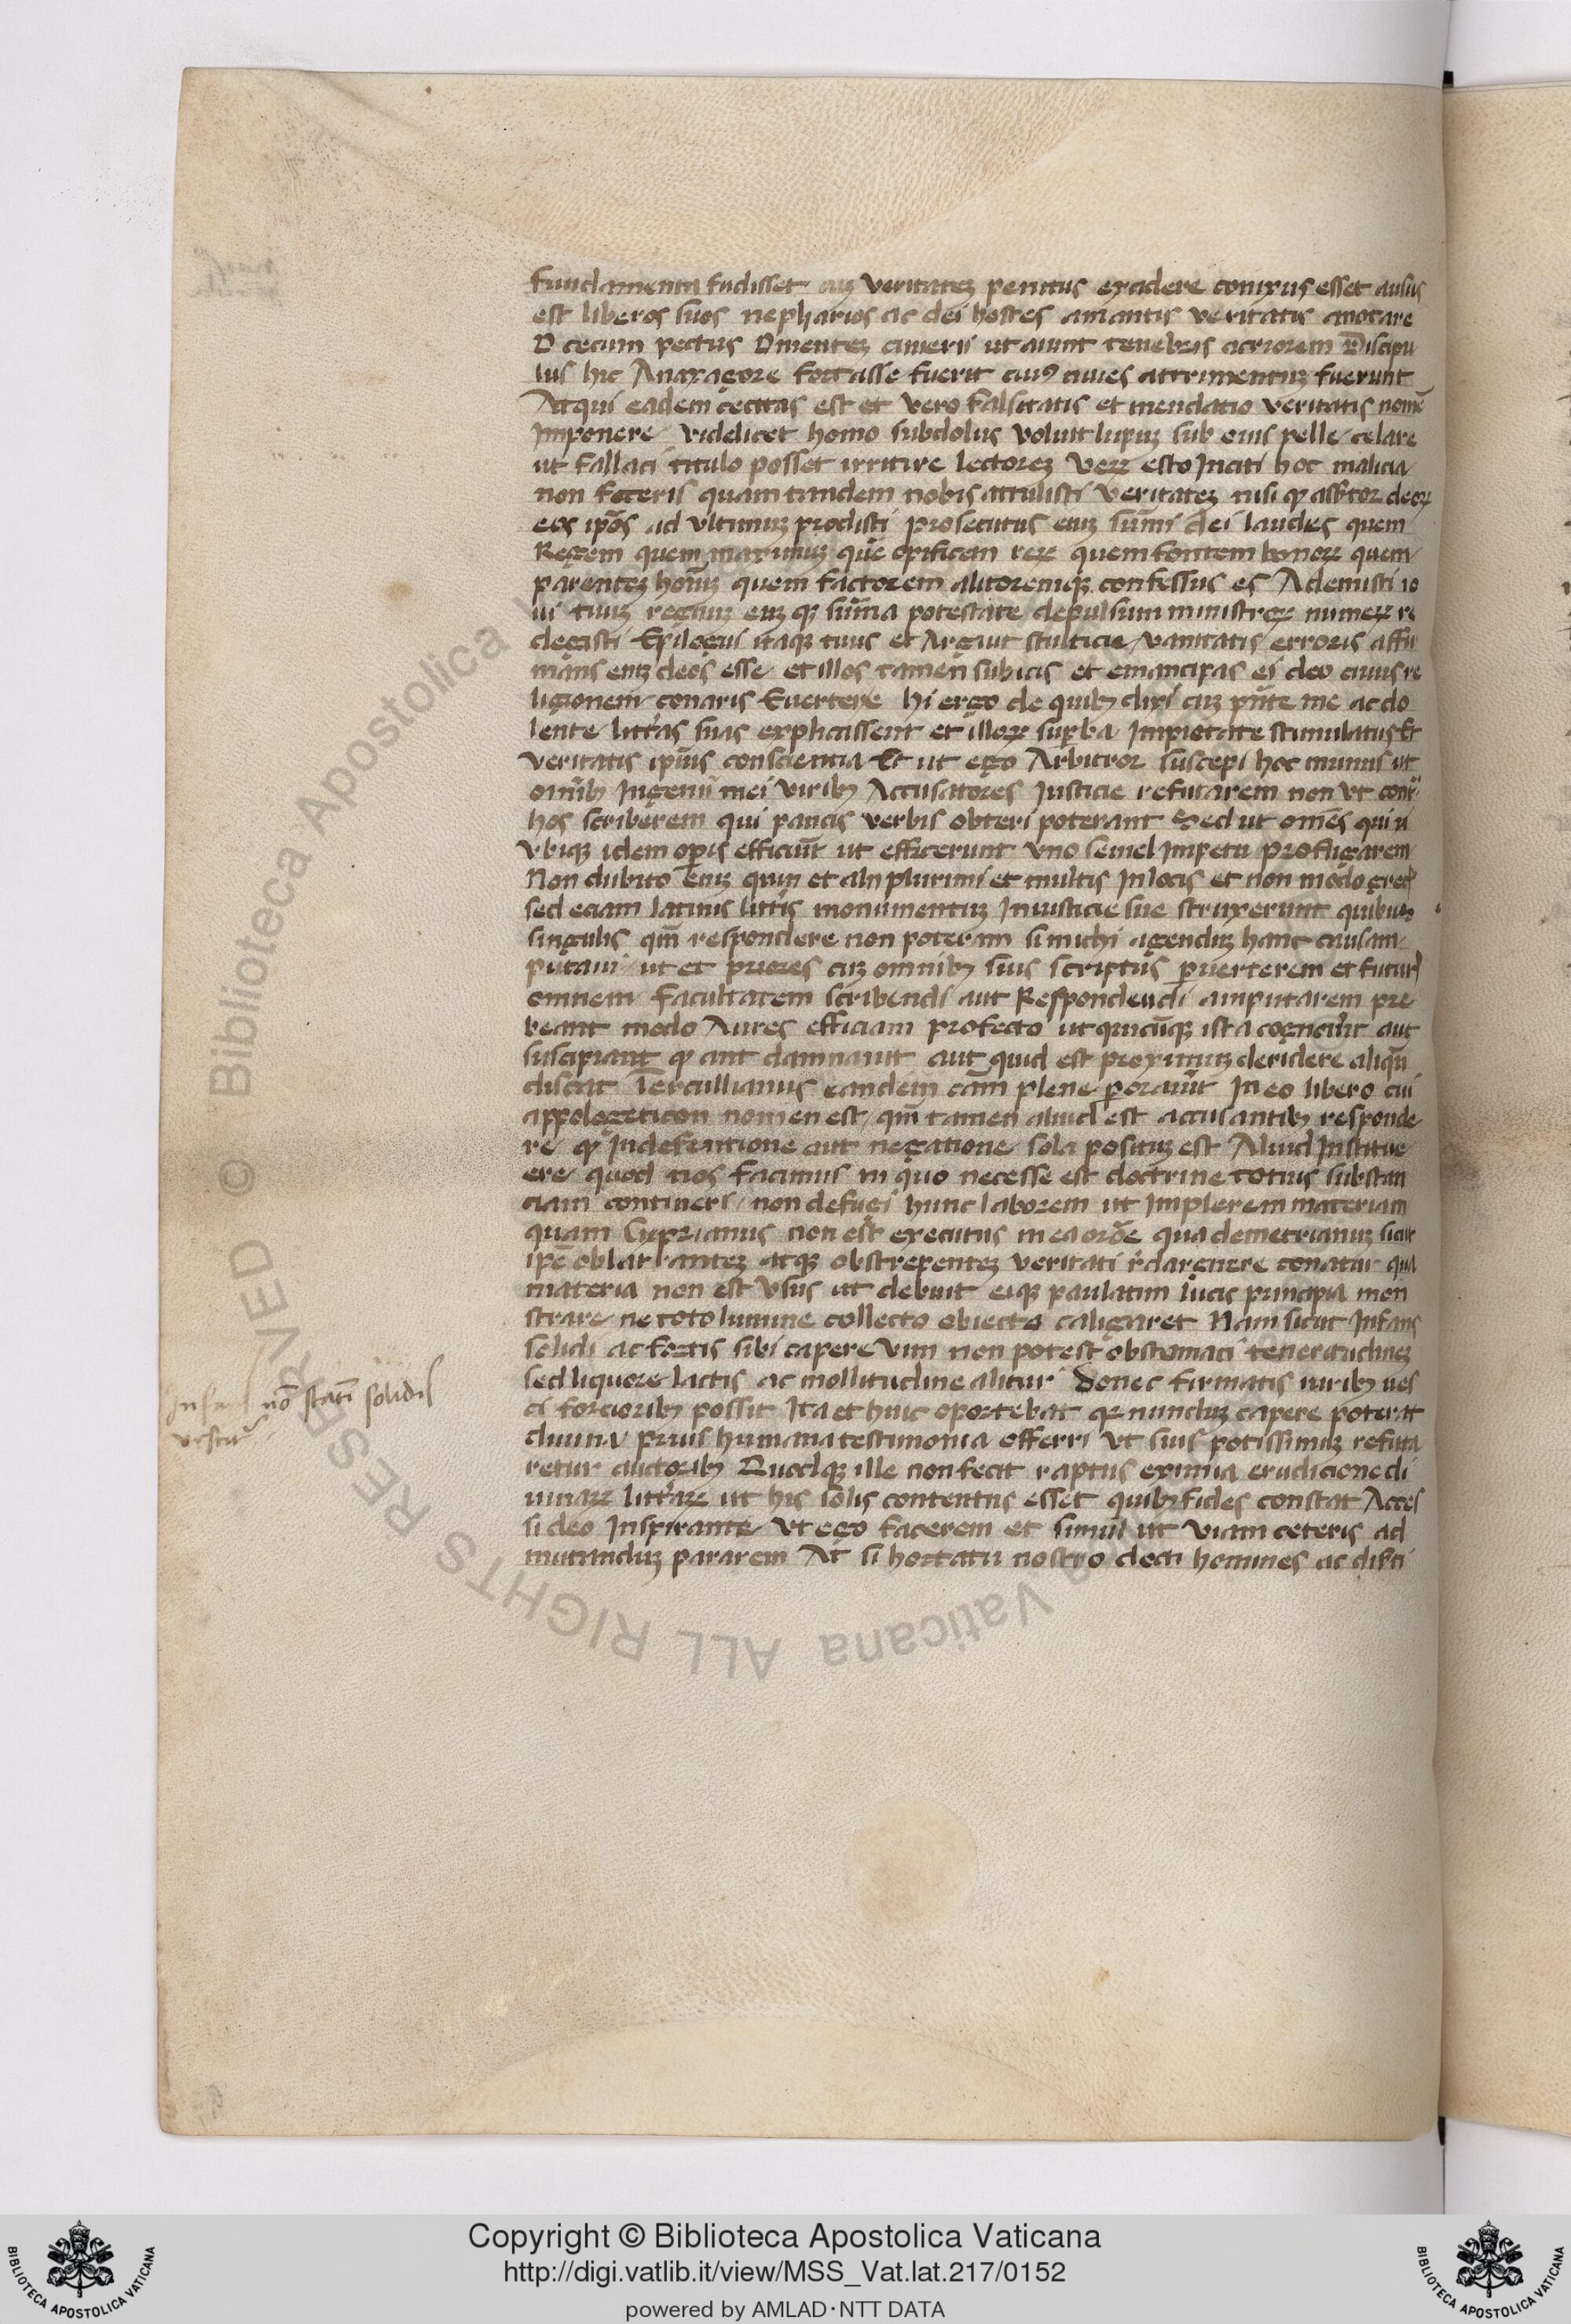 fundamenta fudisset cuȝ veritateȝ penitus excidere conixus esset ausus
est liberos suos nepharios ac dei hostes amantis veritatis anotare
O cecum pectus O menteȝ cimerii ut aiunt tenebris atriorem Discipu
lus hic Anaxagore fortasse fuerit cuiꝰ niues attrimentuȝ fuerunt
Atqui eadem cecitas est et vero falsitatis et mendatio veritatis nomē
Imponere videlicet homo subdolus voluit lupuȝ sub ouis pelle celare
ut fallaci titulo posset irritire lectoreȝ Veꝝ esto Inciti hoc malicia
non feceris quam tandem nobis attulisti veritateȝ nisi ꝙ asŝtor deoꝝ
eos ip̄os ad vltimuȝ prodisti prosecutus eniȝ sūmi dei laudes quem
Regem quem maximuȝ quē opificem reꝝ quem fontem bonoꝝ quem
parenteȝ hom̄ȝ quem factorem altoremqȝ confessus es Ademisti io
ui tuuȝ regnuȝ euȝ qȝ sūma potestate depulsum ministroꝝ numeꝝ re
degisti Epilogui itaqȝ tuus et Arguit stulticie vanitatis erroris affir
māns eniȝ deos esse et illos tamen subicis et emancipas ei deo cuius re
ligionem conaris Euertere hi ergo de quibȝ dixi cuȝ pn̄te me ac do
lente litt̄as suas explicassent et illoꝝ suꝑba Impietate stimulatus Et
veritatis ipīus conscientia Et ut ego Arbitror suscepi hoc munus ut
omībȝ Ingenii mei viribȝ Accusatores Justicie refutarem non vt contͣ
hos scriberem qui paucis verbis obteri poterant Sed ut omēs qui u
vbiqȝ idem oꝑis efficiūt ut effecerunt vno semel Impetu profligarem
Non dubito Eniȝ quin et alii plurimi et multis In locis et non modo grecꝭ
sed eciam latinis litt̄is monumentuȝ Iniusticie sue struxerunt quibus
singulis qm̄ respondere non poteram si michi agenduȝ hanc causam
putaui ut et priores cuȝ omnibȝ suis scriptis ꝑuerterem et futurꝭ
omnem facultatem scribendi aut Respondendi amputarem pre
beant modo Aures efficiam profecto ut quicūqȝ ista cogno͛it aut
suscipiant ꝙ ant damnauit aut quid est proximuȝ deridere aliqn̄
discat Tertullianus eandem cām plene ꝑorauit In eo libero cui
appologeticon nomen est qm̄ tamen aliud est accusantibȝ responde
re ꝙ In defentione aut negatione sola posituȝ est Aliud Institue
ere quod nos facimus in quo necesse est doctrine totius substan
ciam contineri non defugi hunc laborem ut Implerem materiam
quam Ciprianus non est executus in ea orōe qua demetrianuȝ sicut
ipē oblatranteȝ atqȝ obstrepenteȝ veritati rͦdarguere conatur qua
materia non est vsus ut debuit eiqȝ paulatim lucis principia mon
strare ne toto lumine collecto obiecto caligaret Nam sicut Infans
solidi ac fortis sibi capere vim non potest ob stomaci teneritudineȝ
sed liquore lactis ac mollitudine alitur donec firmatis uiribȝ ues
ci forcioribȝ possit Ita et huic oportebat qꝛ nunduȝ capere poterat
diuina prius humana testimonia offerri vt suis potissimuȝ refuta
retur auctoribȝ Quodqȝ ille non fecit raptus eximia erudicione di
uinaꝝ litt̄aꝝ ut his solis contentus esset quibȝ fides constat Acces
si deo Inspirante vt ego facerem et simul ut viam ceteris ad
mutanduȝ pararem At si hortatu nostro docti homines ac dis̄ti
nō stati᷑ solidis
vescit᷑
Copyright © Biblioteca Apostolica Vaticana
http://digi.vatlib.it/view/MSS_Vat.lat.217/0152
powered by AMLAD·NTT DATA
BIBLIOTECA APOSTOLICA VATICANA
BIBLIOTECA APOSTOLICA VATICANA
© Biblioteca Apostolica Vaticana ALL RIGHTS RESERVED